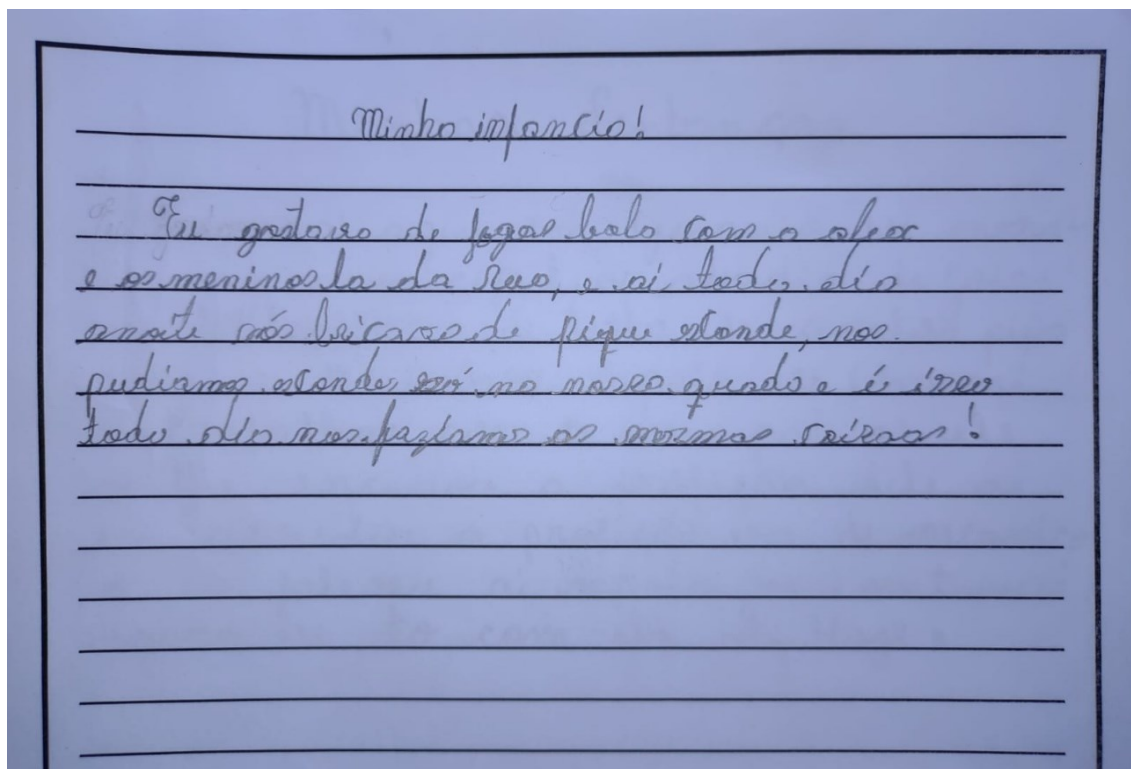 Minha infancia!
Eu gostava de jogar bola com o alex
e os meninos la da rua, e ai todo dia
anoite nós bricavas de pique esconde, nos
pudiamos esconder só na nossa quada e é isso
todo dia nos faziamos as mesmas coisas!